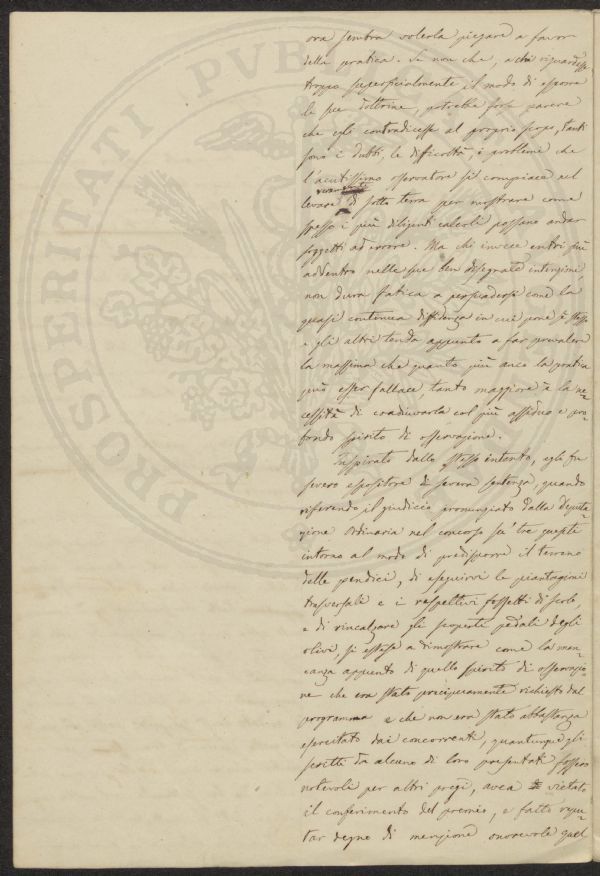 ora sembra volerla piegare a favor
della pratica. Se non che, a chi riguardasse
troppo superficialmente il modo di esporre
le sue dottrine, potrebbe forse parere
che egli contradicesse al proprio scopo, tanti
sono i dubbi, le difficoltà, i problemi che
l'acutissimo osservatore si compiace nel
levare di sotto terra per mostrare come
spesso i più diligenti calcoli possano andar
soggetti ad errore. Ma chi invece entri più
addentro nelle sue ben disegnate intenzioni
non dura fatica a persuadersi come la
quasi continua diffidenza in cui pone sè stesso
e gli altri tenda appunto a far prevalere
la massima che quanto più anco la pratica
può esser fallace, tanto maggiore è la ne-
cessità di coadiuvarla col più assiduo e pro-
fondo spirito di osservazione.
Inspirato dallo stesso intento, egli fu
severo espositore di severa sentenza, quando
riferendo il giudicio pronunziato dalla Deputa-
zione Ordinaria nel concorso su' tre quesiti
intorno al modo di predisporre il terreno
delle pendici, di eseguirvi le piantagioni
trasversali e i respettivi fossetti di scolo,
e di rincalzare gli scoperti pedali degli
olivi, si estese a dimostrare come la man-
canza appunto di quello spirito di osservazio-
ne che era stato precipuamente richiesto dal
programma e che non era stato abbastanza
esercitato dai concorrenti, quantunque gli
scritti da alcuno di loro presentati fossero
notevoli per altri pregi, avea vietato
il conferimento del premio, e fatto repu-
tar degno di menzione onorevole quel
PROSPERITATI PVBL